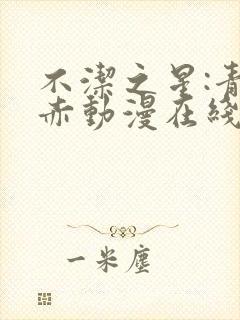 不潔之星:青
赤動漫在綫
一米塵